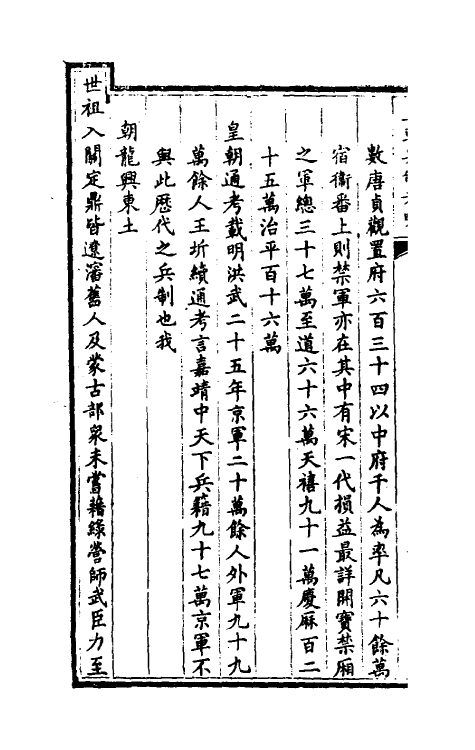 數唐貞觀置府六百三十四以中府千人為率凡六十餘萬
宿衞番上則禁軍亦在其中有宋一代損益最詳開寶禁廂
之軍總三十七萬至道六十六萬天禧九十一萬慶厤百二
十五萬治平百十六萬
皇朝通考載明洪武二十五年京軍二十萬餘人外軍九十九
萬餘人王圻續通考言嘉靖中天下兵籍九十七萬京軍不
與此歷代之兵制也我
朝龍興東土
世祖入關定鼎皆遼瀋舊人及蒙古部衆未嘗藉綠營師武臣力至